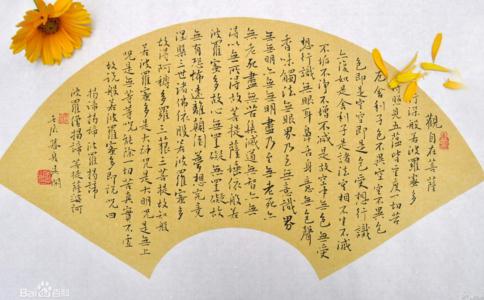 觀自在菩薩
行深般若波羅蜜多
時照見五蘊皆空度一切苦
厄舍利子色不異空空不異色
色即是空空即是色受想行識
亦復如是舍利子是諸法空相不生不滅
不垢不淨不增不減是故空中無色無受
想行識無眼耳鼻舌身意無色聲
香味觸法無眼界乃至無意識界
無無明亦無無明盡乃至無老死亦
無老死盡無苦集滅道無智亦無
得以無所得故菩提薩埵依般若
波羅蜜多故心無罣礙無罣礙故
無有恐怖遠離顛倒夢想究竟
涅槃三世諸佛依般若波羅蜜多
故得阿耨多羅三藐三菩提故知般
若波羅蜜多是大神咒是大明咒是無上
咒是無等等咒能除一切苦真實不虛
故說般若波羅蜜多咒即說咒曰
揭諦揭諦波羅揭諦
波羅僧揭諦菩提薩婆訶
Baidu百科